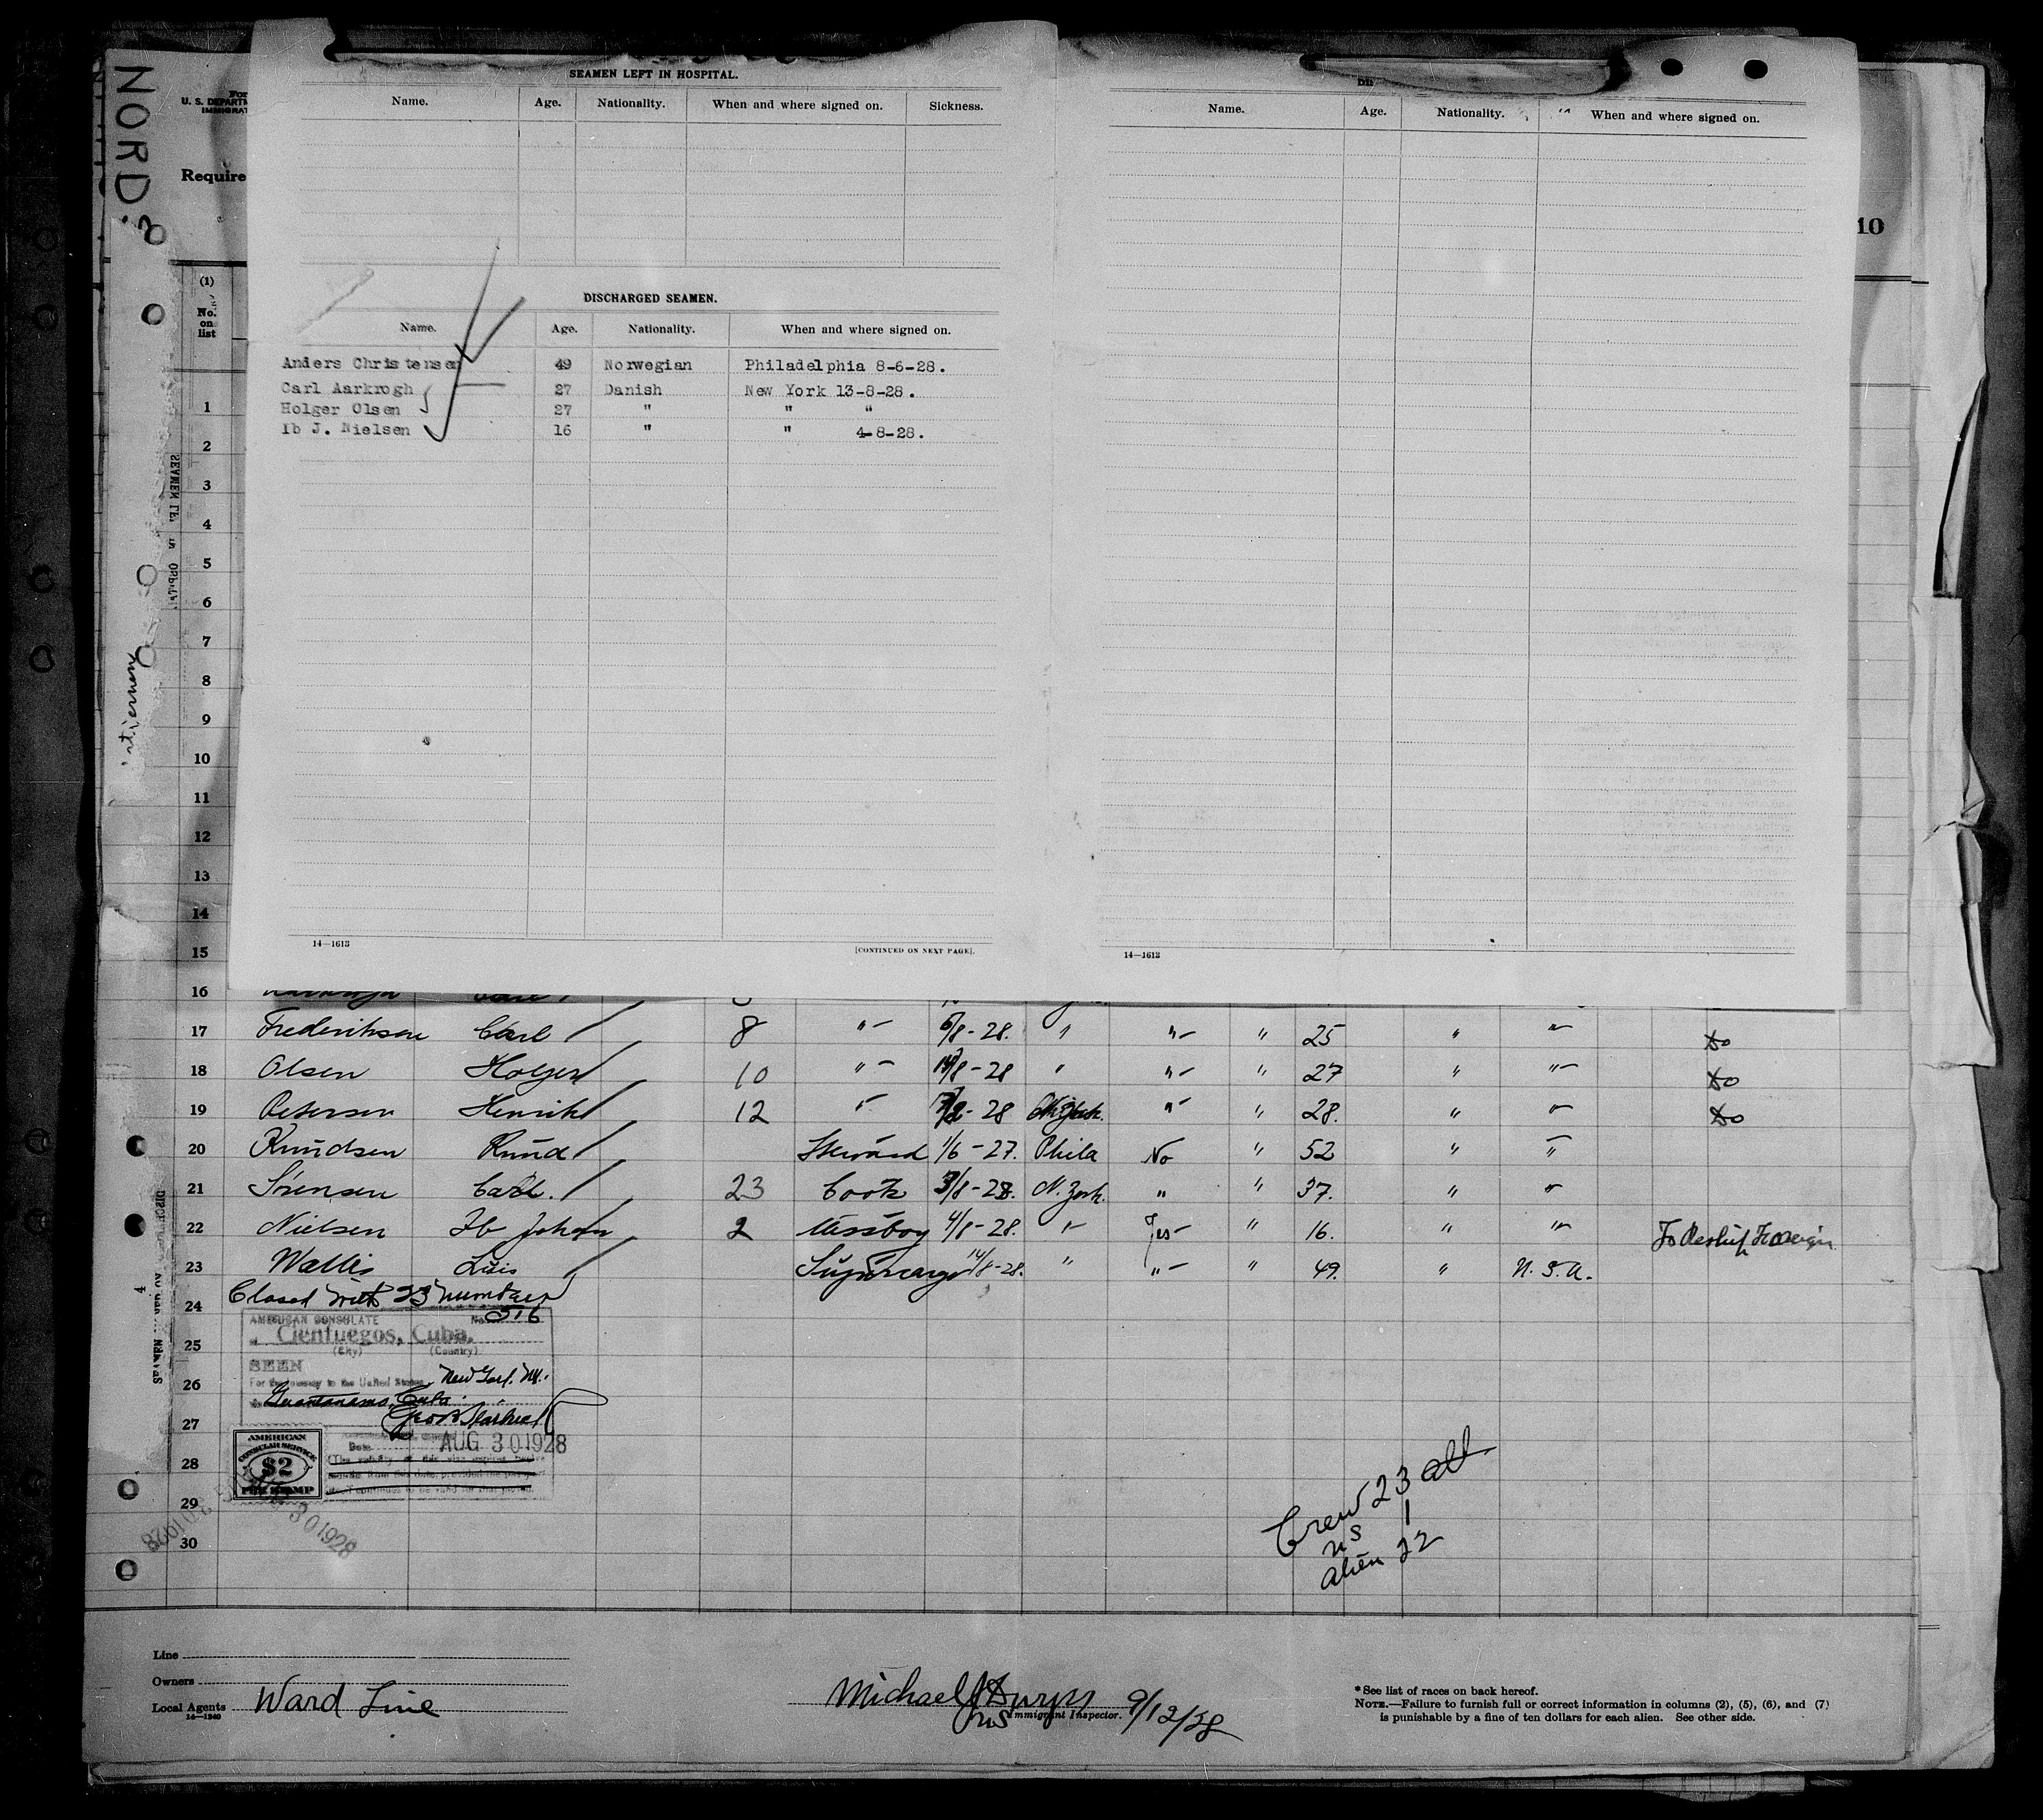 NORD:
For
U. S. DEPARTM
IMMIGRAT
Require
10
SEAMEN LEFT IN HOSPITAL.
Name. Age. Nationality. When and where signed on. Sickness.
Name. Age. Nationality. When and where signed on.
DISCHARGED SEAMEN.
Name. Age. Nationality. When and where signed on.
Anders Christensen 49 Norwegian Philadelphia 8-6-28.
Carl Aarkrogh 27 Danish New York 13-8-28.
Holger Olsen 27 " " "
Ib J. Nielsen 16 " " 4-8-28.
14—1613 [CONTINUED ON NEXT PAGE].
14—1613
(1)
No.
on
list
1
2
3
4
5
6
7
8
9
10
11
12
13
14
15
16
17 Frederiksen Carl 8 "- 6/8-28. " "- " 25 " "- Do
18 Olsen Holger 10 "- 14/8-28 " "- " 27 " "- Do
19 Petersen Henrik 12 "- 28 N. York. "- " 28. " "- Do
20 Knudsen Knud Steward 1/6-27. Phila No " 52 " "-
21 Sörensen Carl. 23 Cook 3/8-28. N. York. " " 37. " "
22 Nielsen Ib Johan 2 Messboy 4/8-28. "- Yes- " 16. " "- To Reship Foreign
23 Wallis Luis Supercargo 14/8-28. " "- " 49. " U. S. A.
24 Closed with 23 numbers
AMERICAN CONSULATE No. 516
at Cienfuegos, Cuba.
(City) (Country)
25
SEEN
For the journey to the United States New York. NY.
26
Guantanamo, Cuba
27
Date AUG 30 1928
AMERICAN
CONSULAR SERVICE
$2
FEE STAMP
28
29
30 1928
30
Crew 23 all
US 1
alien 22
Line
Owners
Local Agents Ward Line
14—1240
Michael
Immigrant Inspector. 9/12/28
*See list of races on back hereof.
NOTE.—Failure to furnish full or correct information in columns (2), (5), (6), and (7)
is punishable by a fine of ten dollars for each alien. See other side.